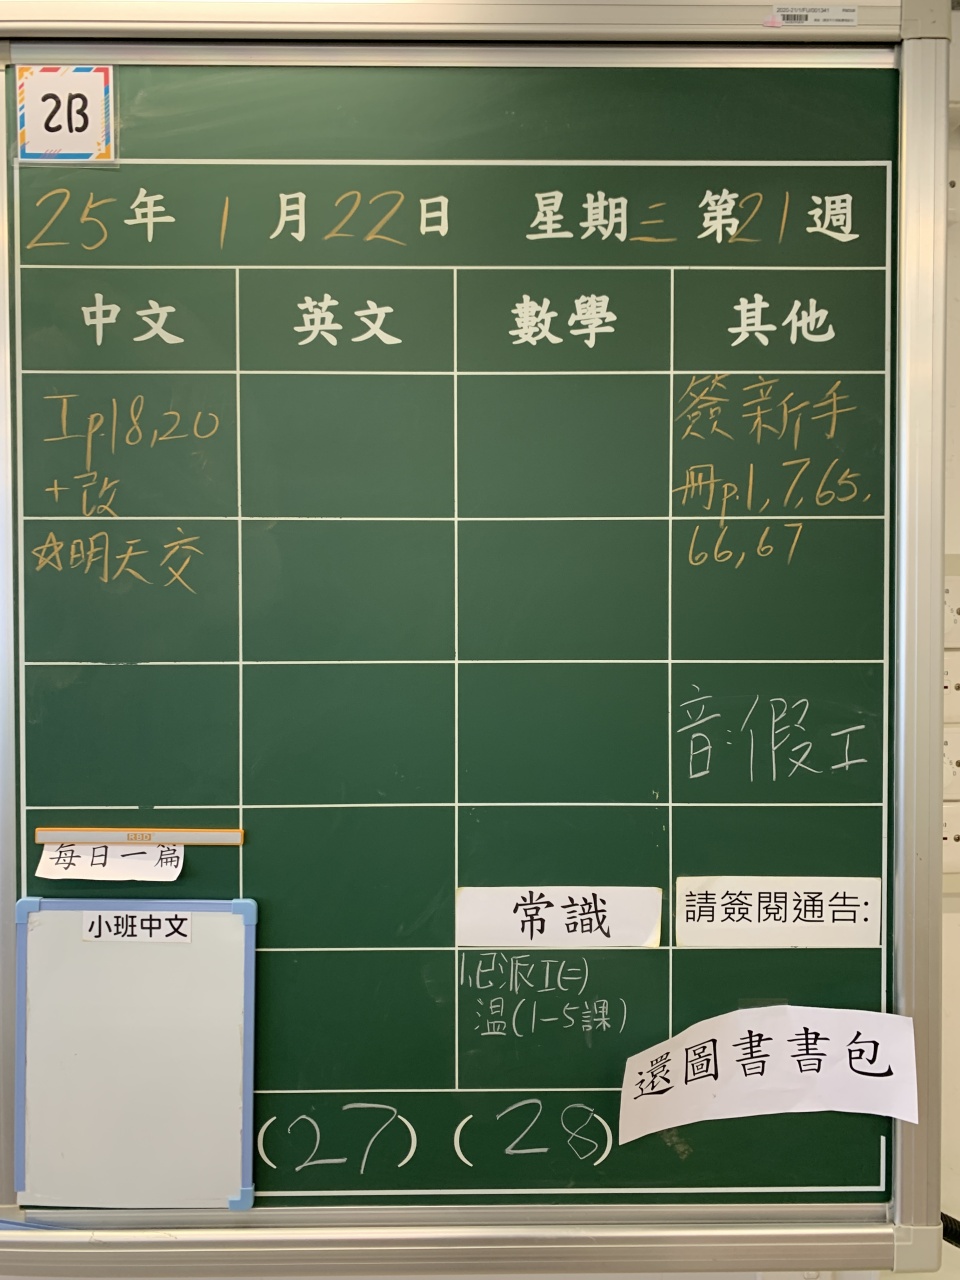 2020-21/1/FU/001341
2B
25年 1月22日 星期三 第21週
中文 英文 數學 其他
工p.18,20
+改
☆明天交
簽新手
冊p.1,7,65,
66,67
音:假工
RBD
每日一篇
小班中文
常識
1.已派工(二)
温(1-5課)
請簽閱通告:
還圖書書包
(27) (28)